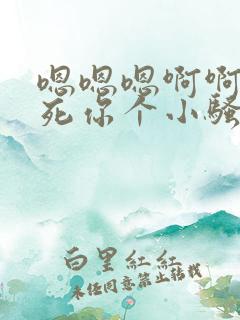 嗯嗯嗯啊啊
死你个小骚
白里红红
未经同意禁止转载